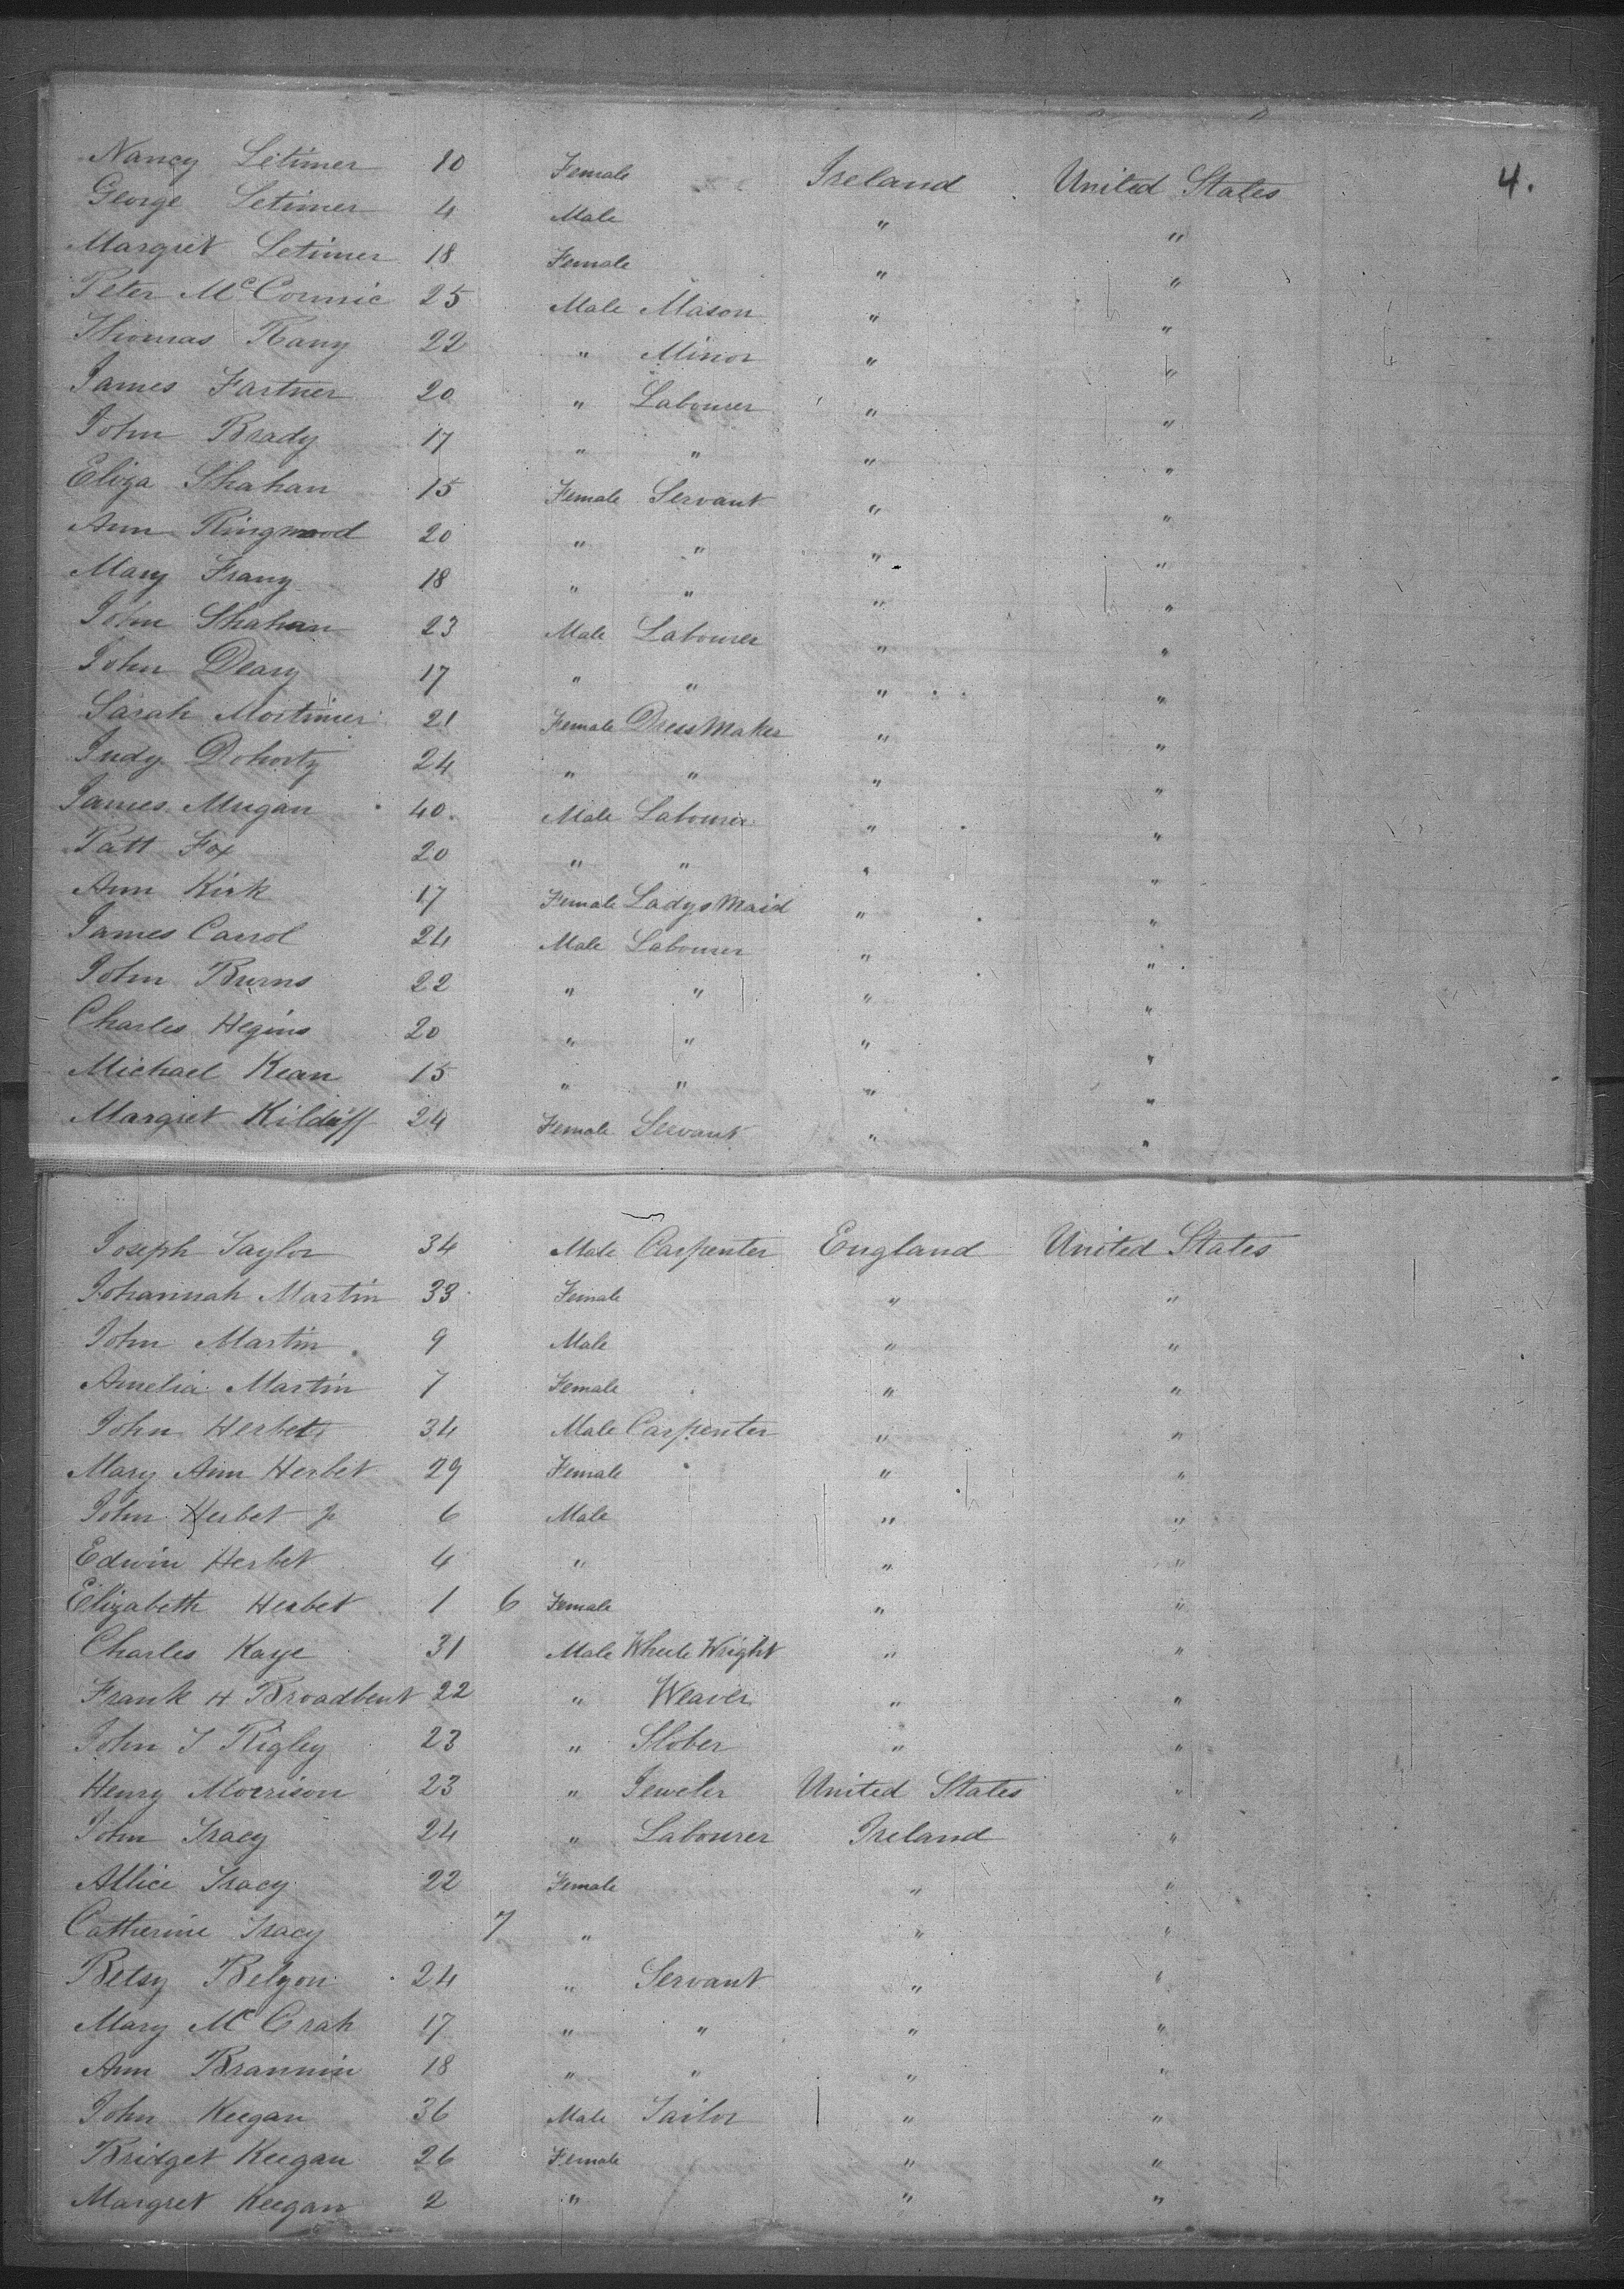 4.
Nancy Letimer 10 Female Ireland United States
George Letimer 4 Male " "
Margret Letimer 18 Female " "
Peter McCormic 25 Male Mason " "
Thomas Rany 22 " Minor " "
James Fartner 20 " Labourer " "
John Brady 17 " " " "
Eliza Shahan 15 Female Servant " "
Ann Ringwood 20 " " " "
Mary Frany 18 " " " "
John Shahan 23 Male Labourer " "
John Deary 17 " " " "
Sarah Mortimer 21 Female DressMaker " "
Judy Dohorty 24 " " " "
James Mugan 40. Male Labourer " "
Patt Fox 20 " " " "
Ann Kirk 17 Female Ladys Maid " "
James Carrol 24 Male Labourer " "
John Burns 22 " " " "
Charles Hegins 20 " " " "
Michael Kean 15 " " " "
Margret Kilduff 24 Female Servant " "
Joseph Taylor 34 Male Carpenter England United States
Johannah Martin 33 Female " "
John Martin 9 Male " "
Amelia Martin 7 Female " "
John Herbet 34 Male Carpenter " "
Mary Ann Herbet 29 Female " "
John Herbet Jr 6 Male " "
Edwin Herbet 4 " " "
Elizabeth Herbet 1 6 Female " "
Charles Kaye 31 Male Wheele Wright " "
Frank H Broadbent 22 " Weaver " "
John T Rigley 23 " Slober " "
Henry Morrison 23 " Jeweler United States "
John Tracy 24 " Labourer Ireland "
Allice Tracy 22 Female " "
Catherine Tracy 7 " " "
Betsy Belyon 24 " Servant " "
Mary McCrah 17 " " " "
Ann Brannin 18 " " " "
John Keegan 36 Male Tailor " "
Bridget Keegan 26 Female " "
Margret Keegan 2 " " "